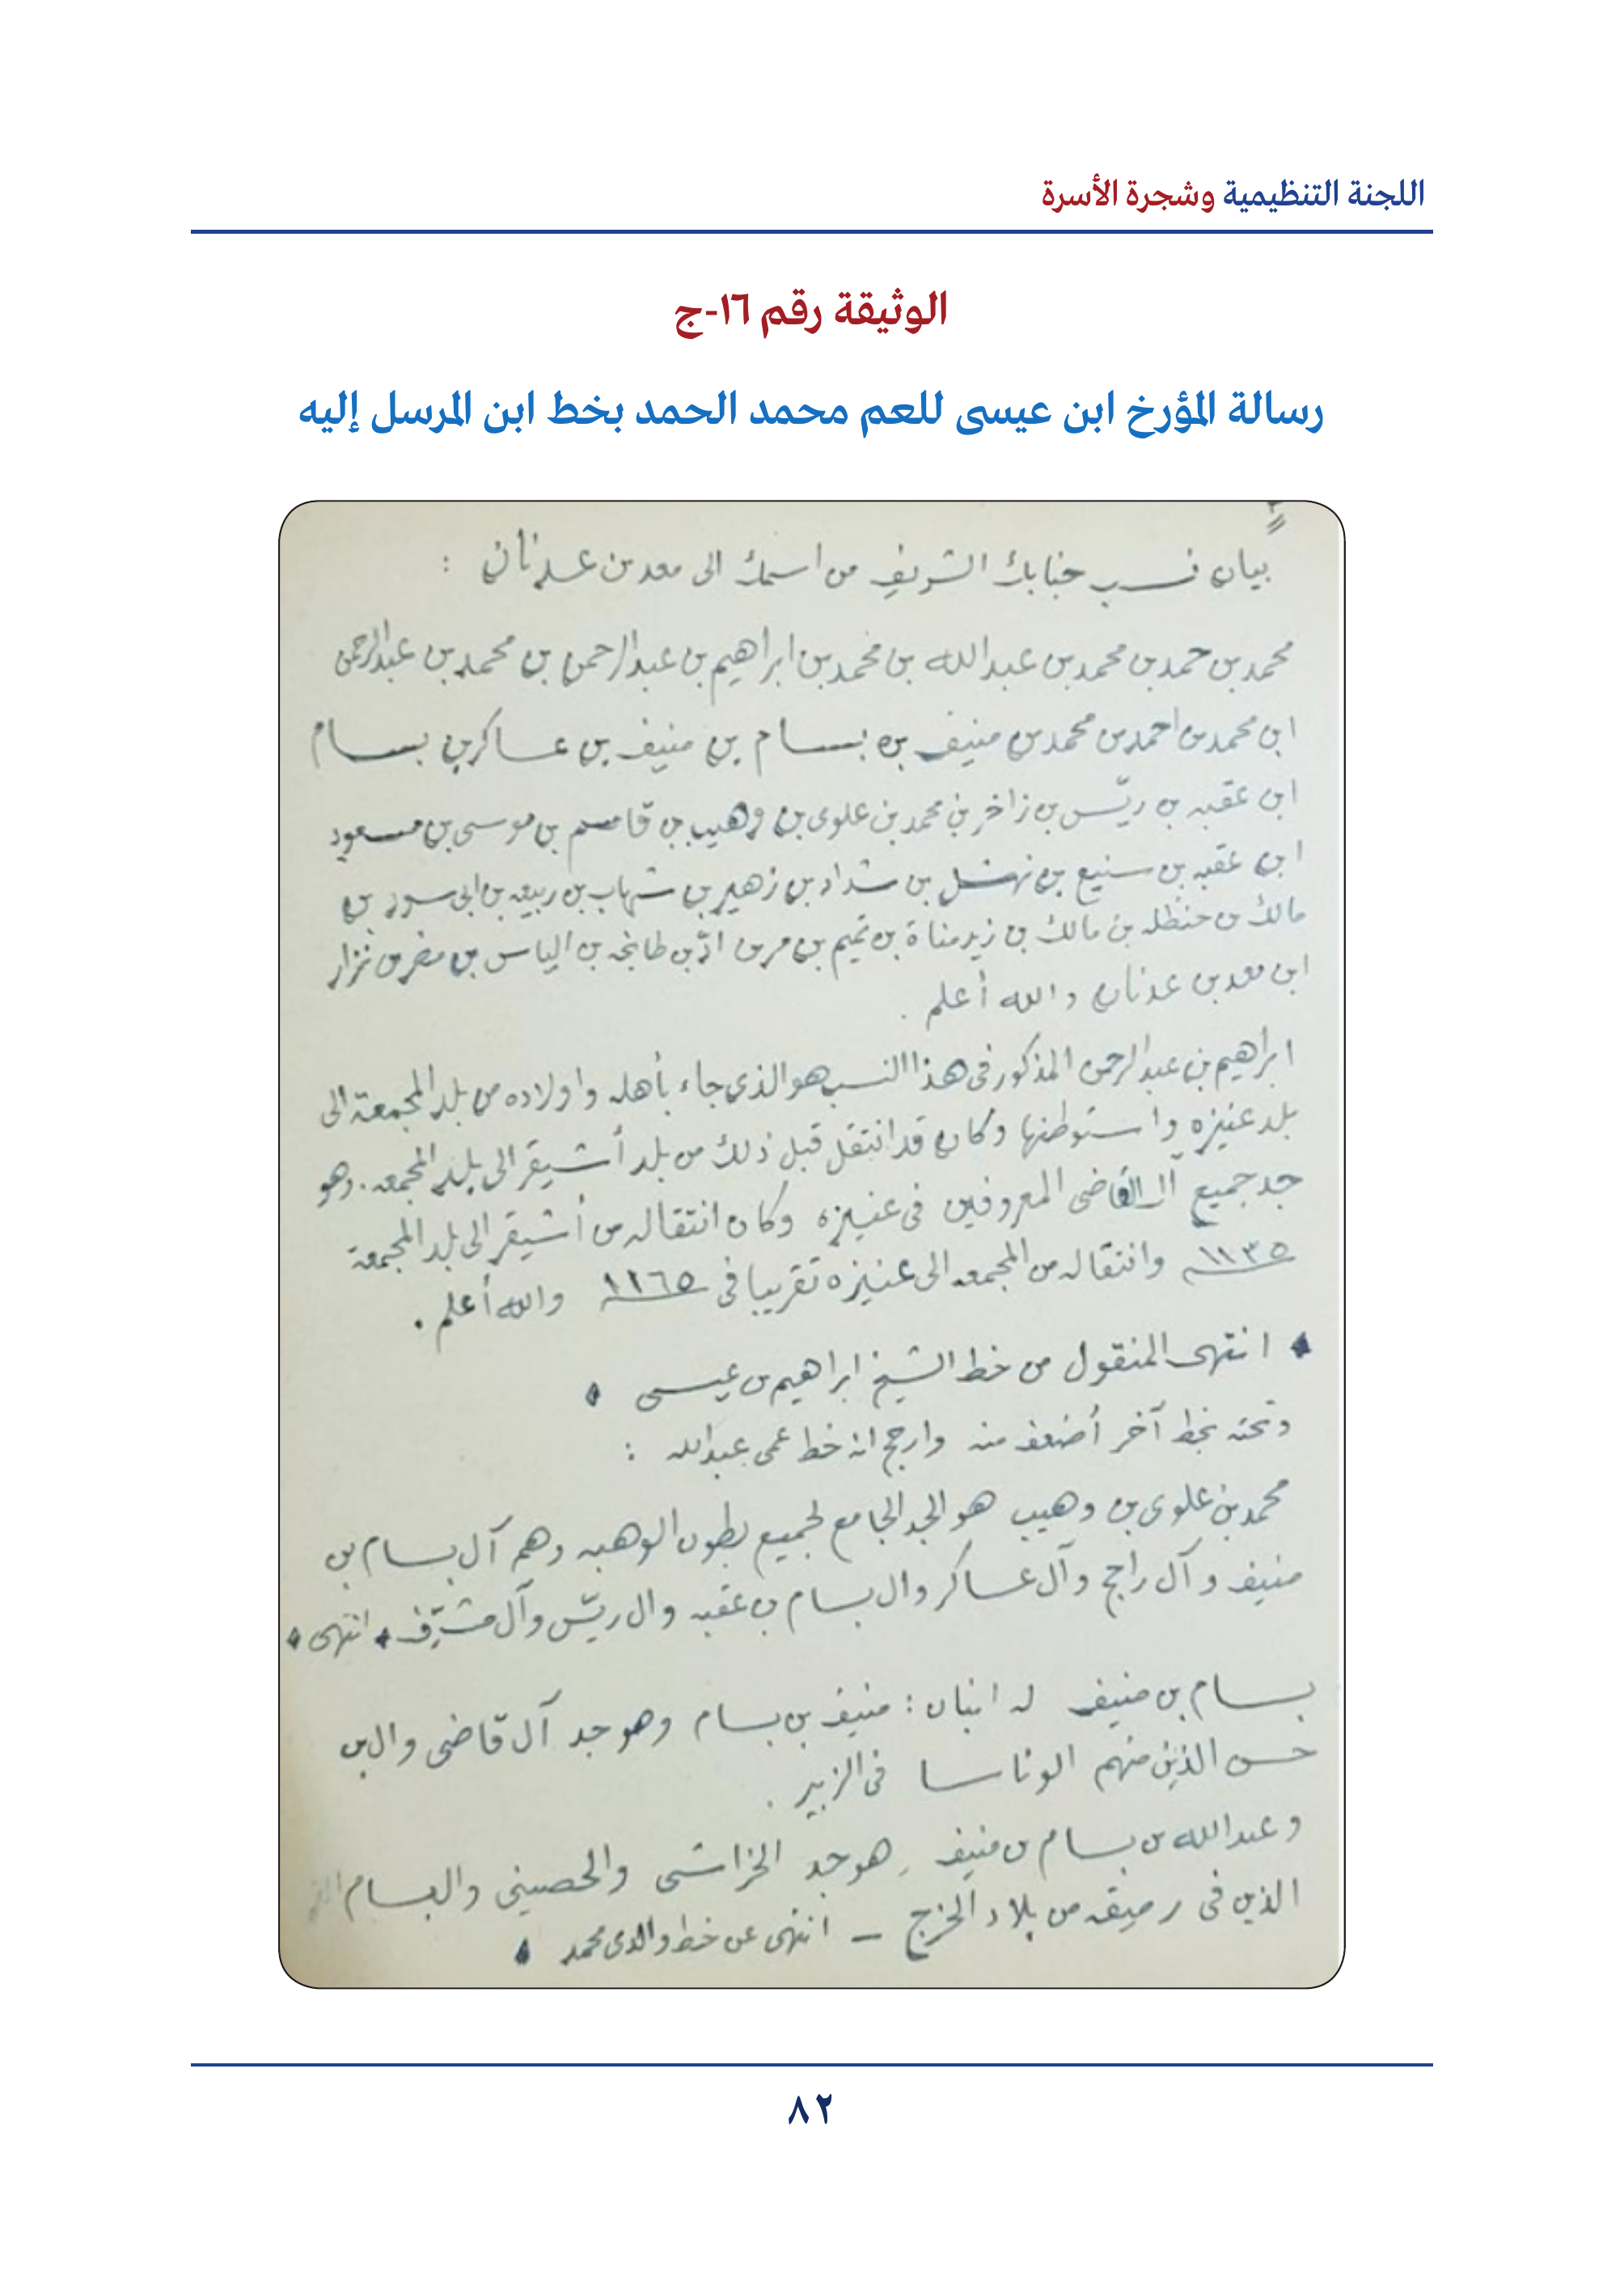 اللجنة التنظيمية وشجرة الأسرة
الوثيقة رقم ١٦-ج
رسالة المؤرخ ابن عيسى للعم محمد الحمد بخط ابن المرسل إليه
بيان نسب جنابك الشريف من اسمك الى معد بن عدنان :
محمد بن حمد بن محمد بن عبدالله بن محمد بن ابراهيم بن عبدالرحمن بن محمد بن عبدالرحمن
ابن محمد بن احمد بن محمد بن منيف بن بسام بن منيف بن عساكر بن بسام
ابن عقبه بن ريّس بن زاخر بن محمد بن علوى بن وهيب بن قاسم بن موسى بن مسعود
ابن عقبه بن سنيع بن نهشل بن شداد بن زهير بن شهاب بن ربيعه بن ابى سود بن
مالك بن حنظله بن مالك بن زيد مناة بن تميم بن مر بن ادّ بن طابخه بن الياس بن مضر بن نزار
ابن معد بن عدنان والله أعلم .
ابراهيم بن عبدالرحمن المذكور فى هذا النسب هو الذى جاء بأهله واولاده من بلد المجمعة الى
بلد عنيزه واستوطنها وكان قد انتقل قبل ذلك من بلد أشيقر الى بلد المجمعه . وهو
جد جميع آل القاضى المعروفين فى عنيزه وكان انتقاله من أشيقر الى بلد المجمعة
١١٣٥ وانتقاله من المجمعه الى عنيزه تقريبا فى ١١٦٥ والله أعلم .
انتهى المنقول من خط الشيخ ابراهيم بن عيسى
وتحته بخط آخر أضعف منه وارجح انه خط عمى عبدالله :
محمد بن علوى بن وهيب هو الجد الجامع لجميع بطون الوهبه وهم آل بسام بن
منيف وآل راجح وآل عساكر وال بسام بن عقبه وال ريّس وآل مشرّف انتهى
بسام بن منيف له ابنان : منيف بن بسام وهو جد آل قاضى وال بن
حسن الذين منهم الوناسا فى الزبير .
وعبدالله بن بسام بن منيف هو جد الخراشى والحصينى والبسام
الذين فى رميقه من بلاد الخرج - انتهى عن خط والدى محمد
٨٢